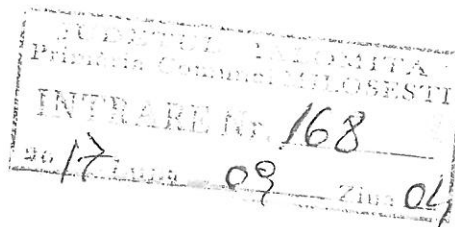 JUDEŢUL IALOMIŢA
Primăria Comunei MILOSESTI
INTRARE Nr. 168
20 17 Luna 09 Ziua 04